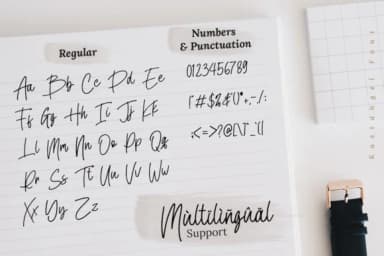 Regular
Aa Bb Cc Dd Ee
Ff Gg Hh Ii Jj Kk
Ll Mm Nn Oo Pp Qq
Rr Ss Tt Uu Vv Ww
Xx Yy Zz
Numbers
& Punctuation
0123456789
Mùltilìñgûäl
Support